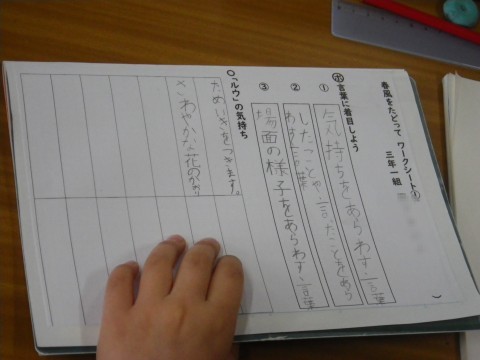 春風をたどって ワークシート①
三年一組
)
ポ言葉に着目しよう
① 気持ちをあらわす言葉
② したことや、言ったことをあら
わす言葉
③ 場面の様子をあらわす言葉
○「ルウ」の気持ち
ためいきをつきます。
さわやかな花のかおり